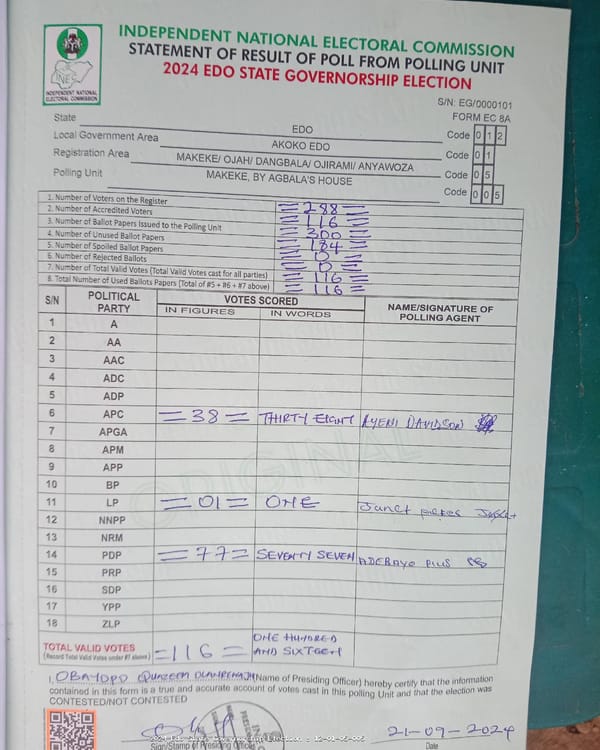 INDEPENDENT NATIONAL ELECTORAL COMMISSION
STATEMENT OF RESULT OF POLL FROM POLLING UNIT
2024 EDO STATE GOVERNORSHIP ELECTION
INEC
INDEPENDENT NATIONAL
ELECTORAL COMMISSION
S/N: EG/0000101
FORM EC 8A
State EDO Code 0 1 2
Local Government Area AKOKO EDO Code 0 1
Registration Area MAKEKE/ OJAH/ DANGBALA/ OJIRAMI/ ANYAWOZA Code 0 5
Polling Unit MAKEKE, BY AGBALA'S HOUSE Code 0 0 5
1. Number of Voters on the Register 288
2. Number of Accredited Voters 116
3. Number of Ballot Papers Issued to the Polling Unit 300
4. Number of Unused Ballot Papers 184
5. Number of Spoiled Ballot Papers 0
6. Number of Rejected Ballots 0
7. Number of Total Valid Votes (Total Valid Votes cast for all parties) 116
8. Total Number of Used Ballots Papers (Total of #5 + #6 + #7 above) 116
S/N POLITICAL PARTY VOTES SCORED NAME/SIGNATURE OF POLLING AGENT
IN FIGURES IN WORDS
1 A
2 AA
3 AAC
4 ADC
5 ADP
6 APC =38= THIRTY EIGHT AYENI DAVIDSON
7 APGA
8 APM
9 APP
10 BP
11 LP =01= ONE
12 NNPP
13 NRM
14 PDP =77= SEVENTY SEVEN ADEBAYO PIUS
15 PRP
16 SDP
17 YPP
18 ZLP
TOTAL VALID VOTES =116= ONE HUNDRED AND SIXTEEN
(Record Total Valid Votes under #7 above)
I, (Name of Presiding Officer) hereby certify that the information
contained in this form is a true and accurate account of votes cast in this polling Unit and that the election was
CONTESTED/NOT CONTESTED
21-09-2024
Sign/Stamp of Presiding Officer Date
ORIGINAL